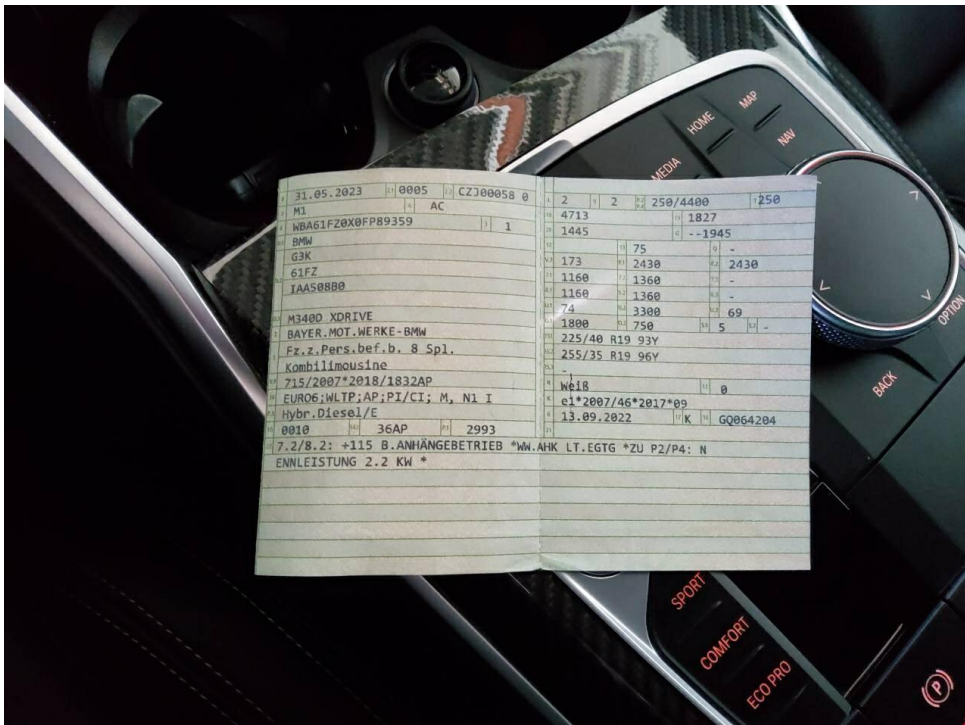 31.05.2023 0005 CZJ00058 0
M1 AC
WBA61FZ0X0FP89359 1
BMW
G3K
61FZ
IAA508B0
M340D XDRIVE
BAYER.MOT.WERKE-BMW
Fz.z.Pers.bef.b. 8 Spl.
Kombilimousine
715/2007*2018/1832AP
EURO6;WLTP;AP;PI/CI; M, N1 I
Hybr.Diesel/E
0010 36AP 2993
2 2 250/4400 250
4713 1827
1445 --1945
75 -
173 2430 2430
1160 1360 -
1160 1360 -
74 3300 69
1800 750 5 -
225/40 R19 93Y
255/35 R19 96Y
-
Weiß 0
e1*2007/46*2017*09
13.09.2022 K GQ064204
7.2/8.2: +115 B.ANHÄNGEBETRIEB *WW.AHK LT.EGTG *ZU P2/P4: N
ENNLEISTUNG 2.2 KW *
HOME
MAP
MEDIA
NAV
OPTION
BACK
SPORT
COMFORT
ECO PRO
P